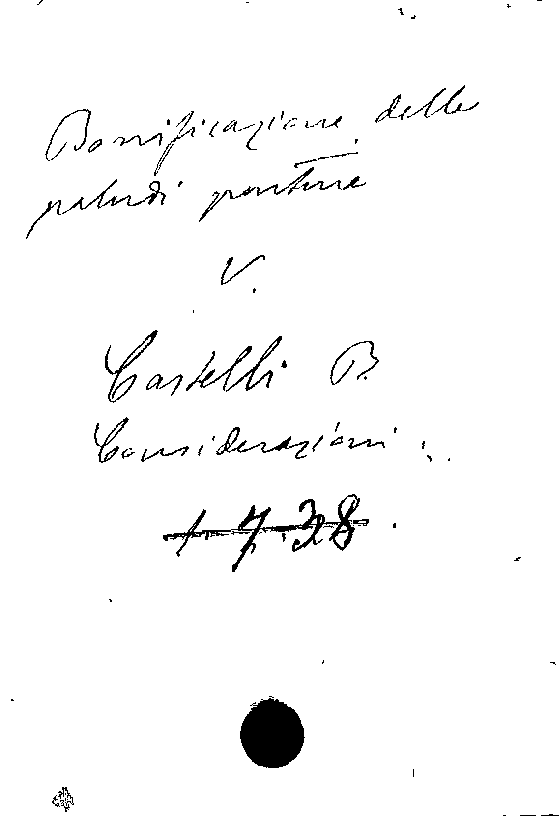 Bonificazione delle
paludi pontine
V.
Castelli B.
Considerazioni ..
1.7.38.